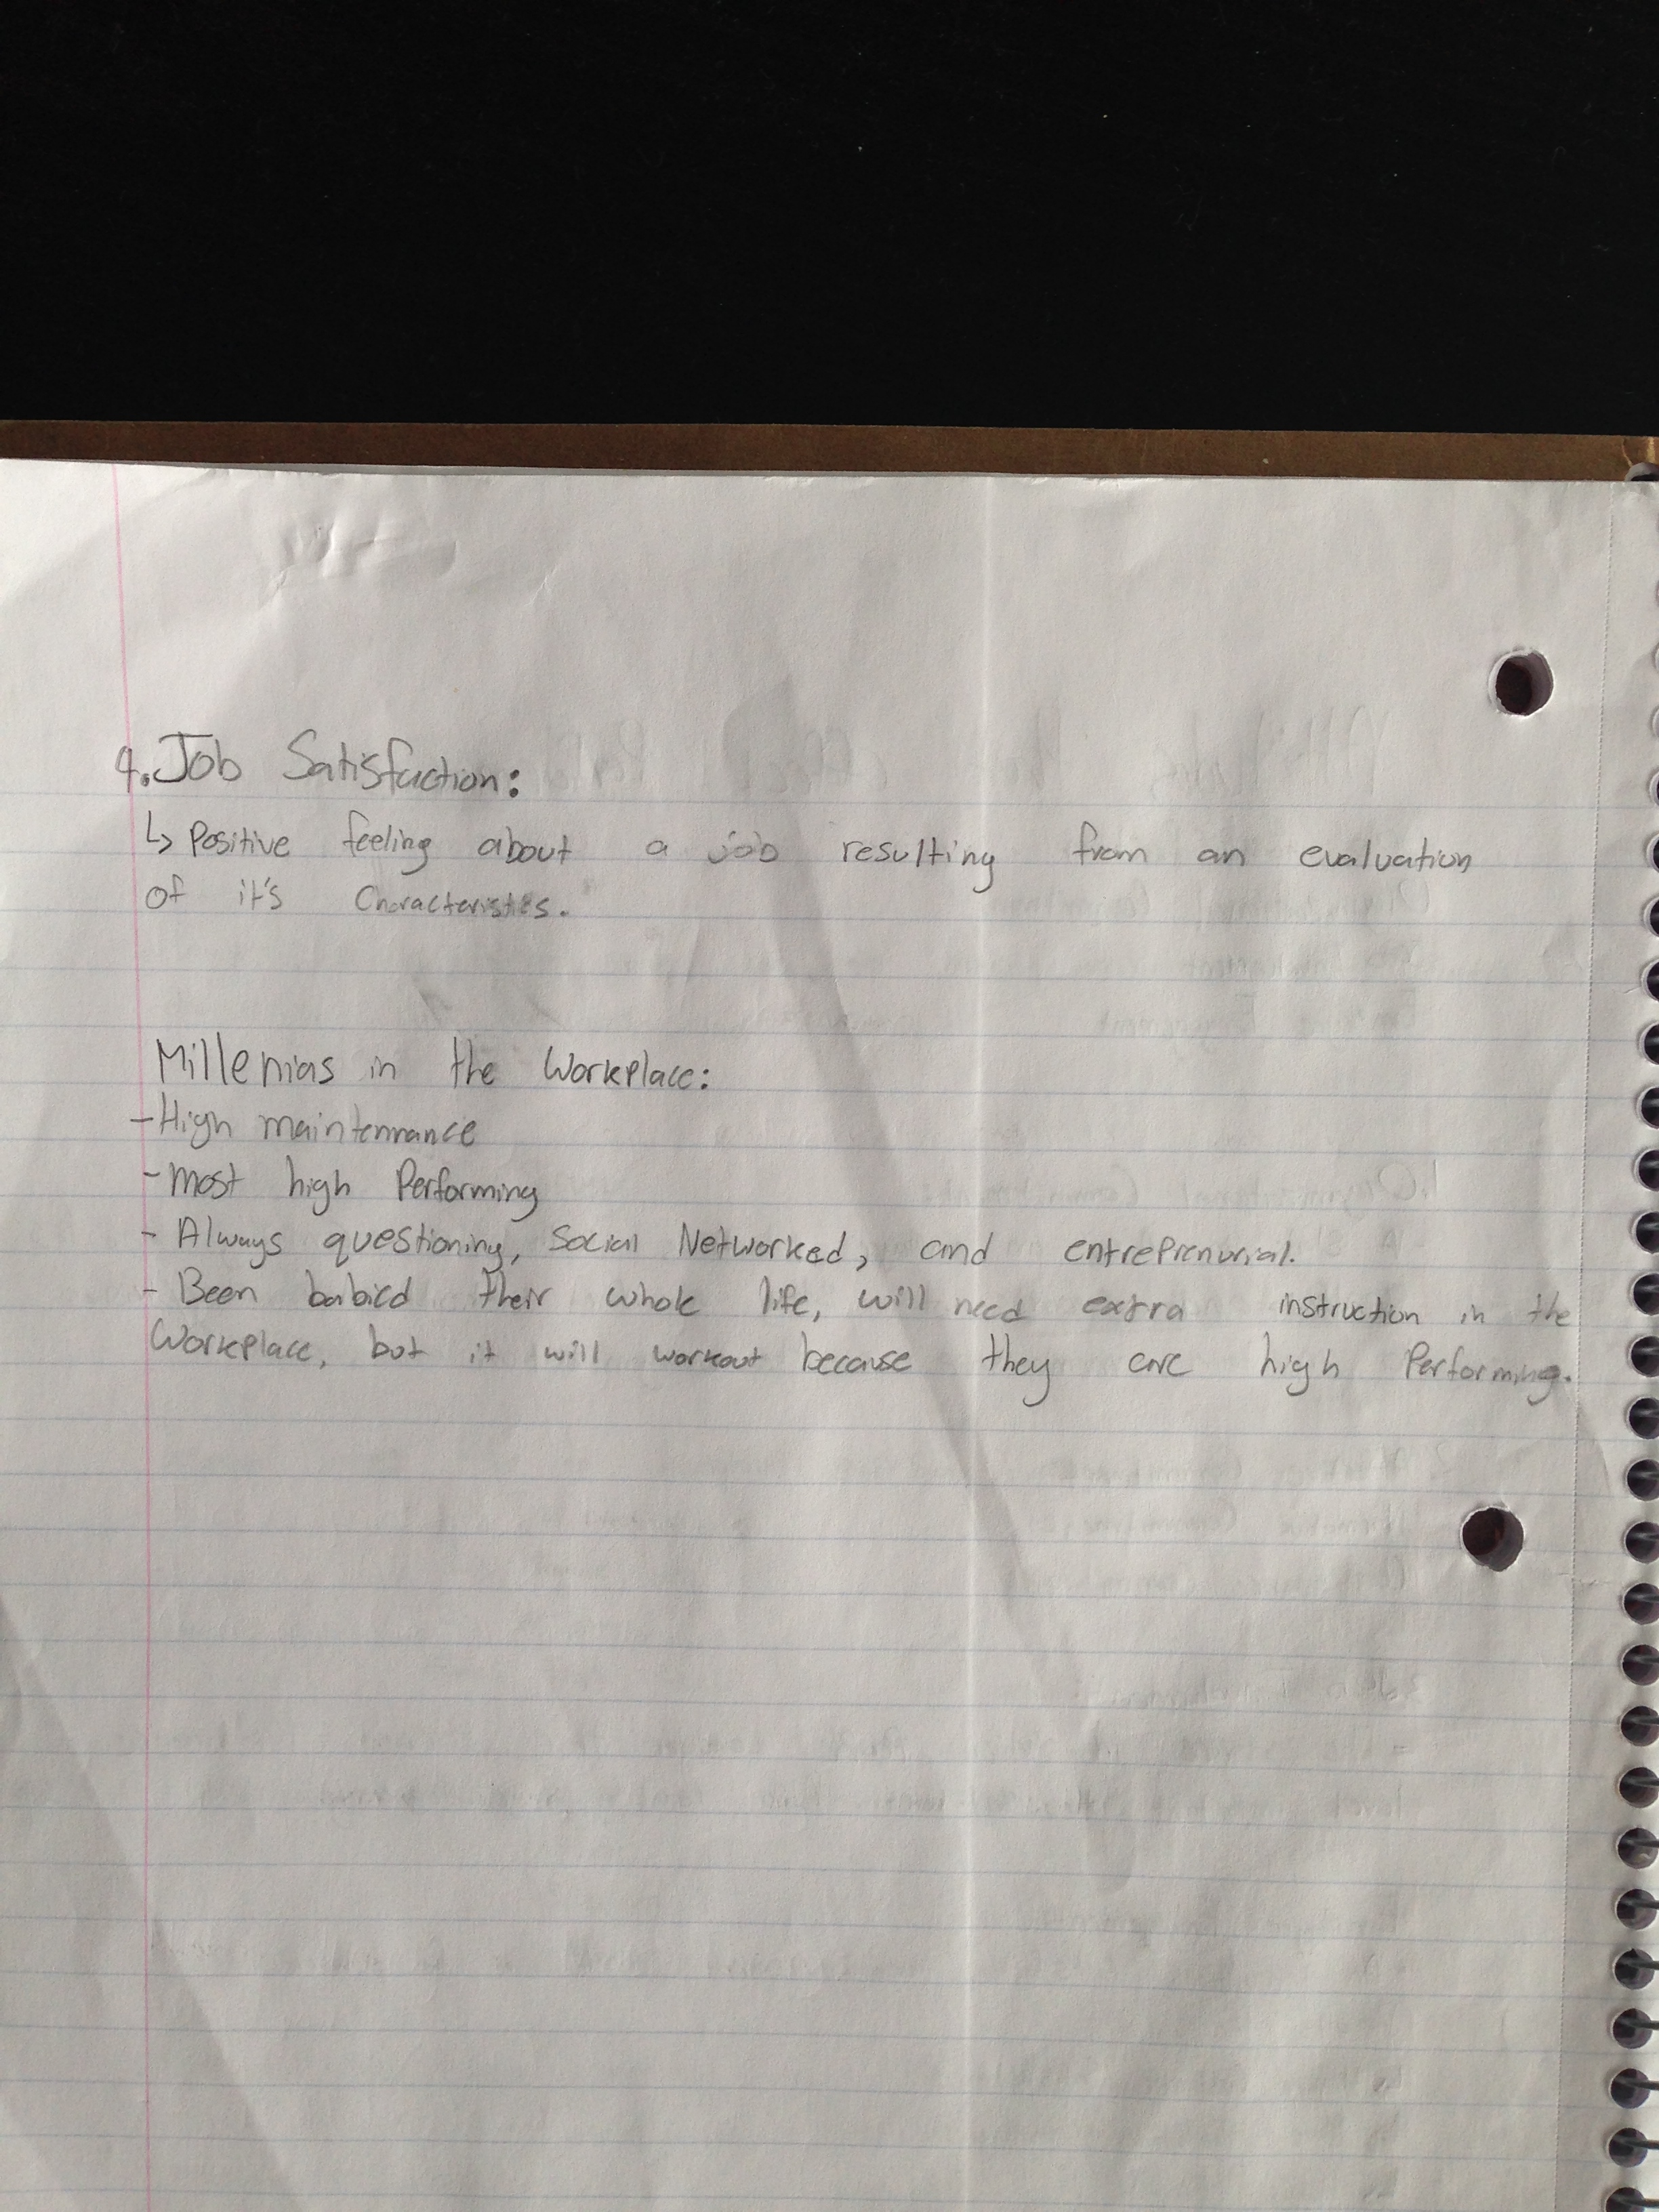 4. Job Satisfaction:
↳ Positive feeling about a job resulting from an evaluation
of it's Characteristics.
Millenias in the Workplace:
- High maintennance
- Most high Performing
- Always questioning, Social Networked, and entreprenurial.
- Been babied their whole life, will need extra instruction in the
Workplace, but it will workout because they are high Performing.